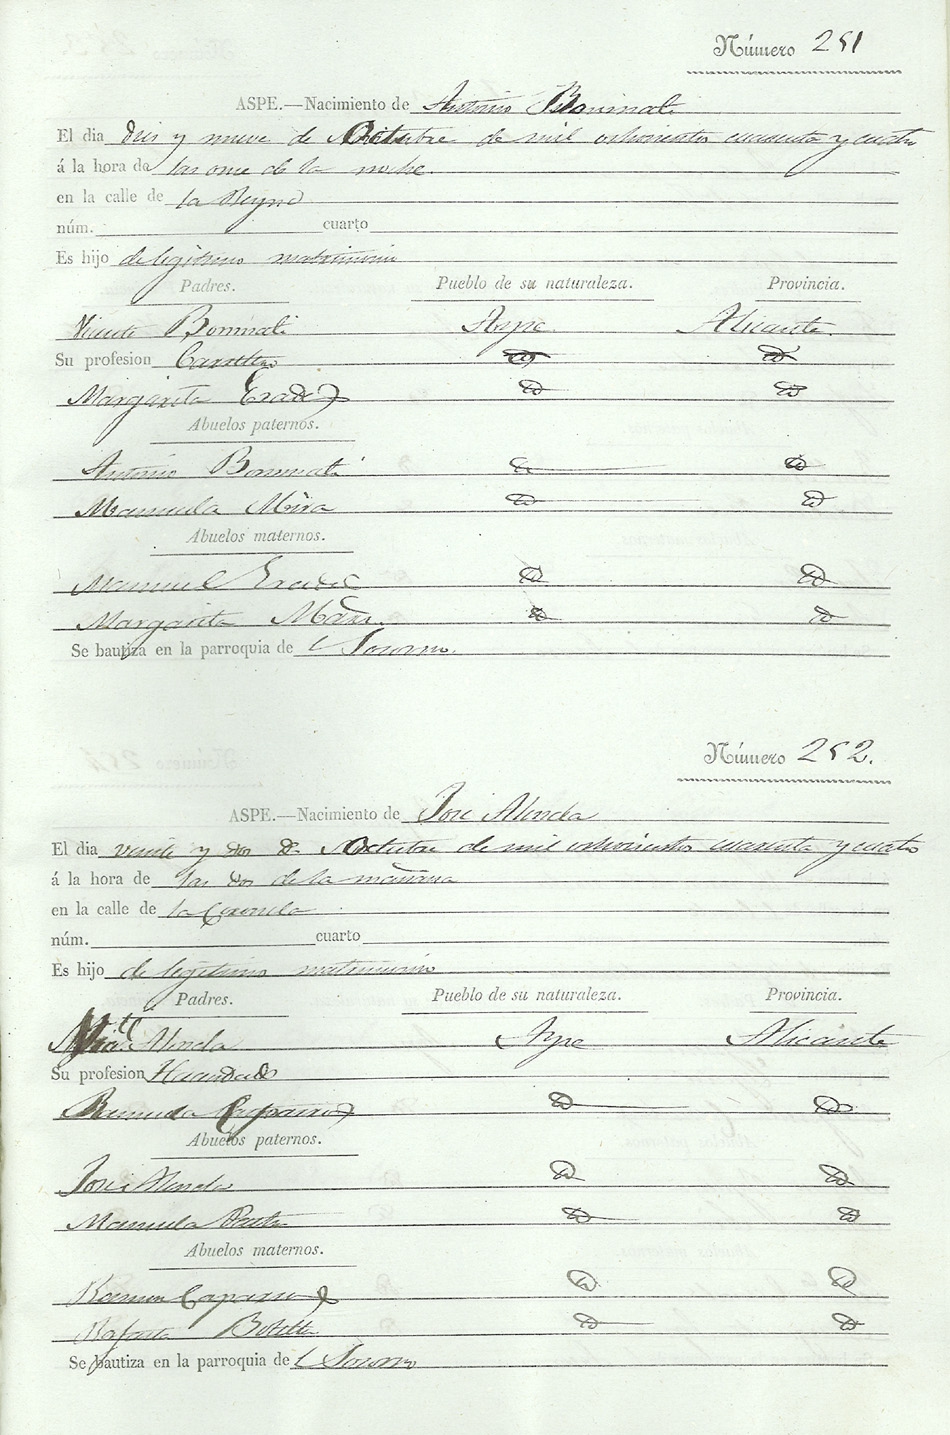 Número 251
ASPE.—Nacimiento de Antonio Bonmati
El dia Dies y nueve de Octubre de mil ochocientos cuarenta y cuatro
á la hora de las once de la noche.
en la calle de la Reyna
núm. cuarto
Es hijo de legitimo matrimonio
Padres. Pueblo de su naturaleza. Provincia.
Vicente Bonmati Aspe Alicante.
Su profesion
Margarita
Abuelos paternos.
Antonio Bonmati
Manuela Mira
Abuelos maternos.
Manuel
Margarita
Se bautiza en la parroquia de l Socorro.
Número 252.
ASPE.—Nacimiento de José Alenda
El dia veinte y dos de Octubre de mil ochocientos cuarenta y cuatro
á la hora de las dos de la mañana
en la calle de la Coronela
núm. cuarto
Es hijo de legitimo matrimonio
Padres. Pueblo de su naturaleza. Provincia.
Alenda Aspe Alicante
Su profesion
Ramona Caparros
Abuelos paternos.
José Alenda
Manuela
Abuelos maternos.
Ramon Caparros
Rafaela Botella
Se bautiza en la parroquia de l Socorro